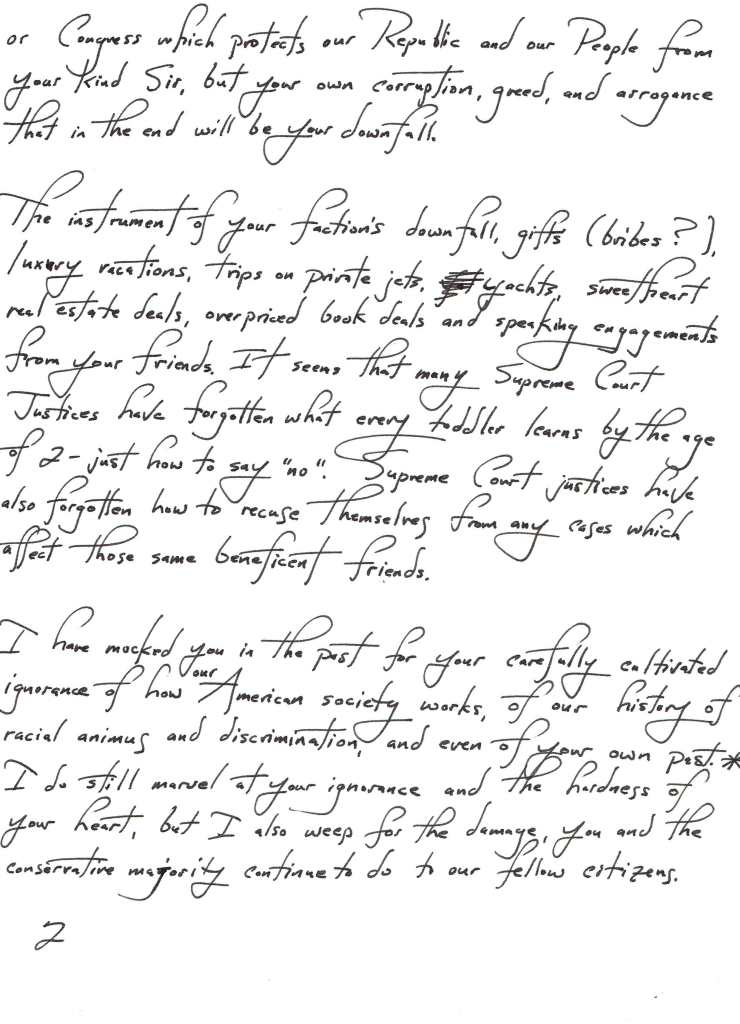 or Congress which protects our Republic and our People from
your kind Sir, but your own corruption, greed, and arrogance
that in the end will be your downfall.
The instrument of your faction's downfall, gifts (bribes?),
luxury vacations, trips on private jets, yachts, sweetheart
real estate deals, overpriced book deals and speaking engagements
from your friends. It seems that many Supreme Court
Justices have forgotten what every toddler learns by the age
of 2 - just how to say "no". Supreme Court justices have
also forgotten how to recuse themselves from any cases which
affect those same beneficent friends.
I have mocked you in the past for your carefully cultivated
ignorance of how our American society works, of our history of
racial animus and discrimination, and even of your own past.*
I do still marvel at your ignorance and the hardness of
your heart, but I also weep for the damage, you and the
conservative majority continue to do to our fellow citizens.
2